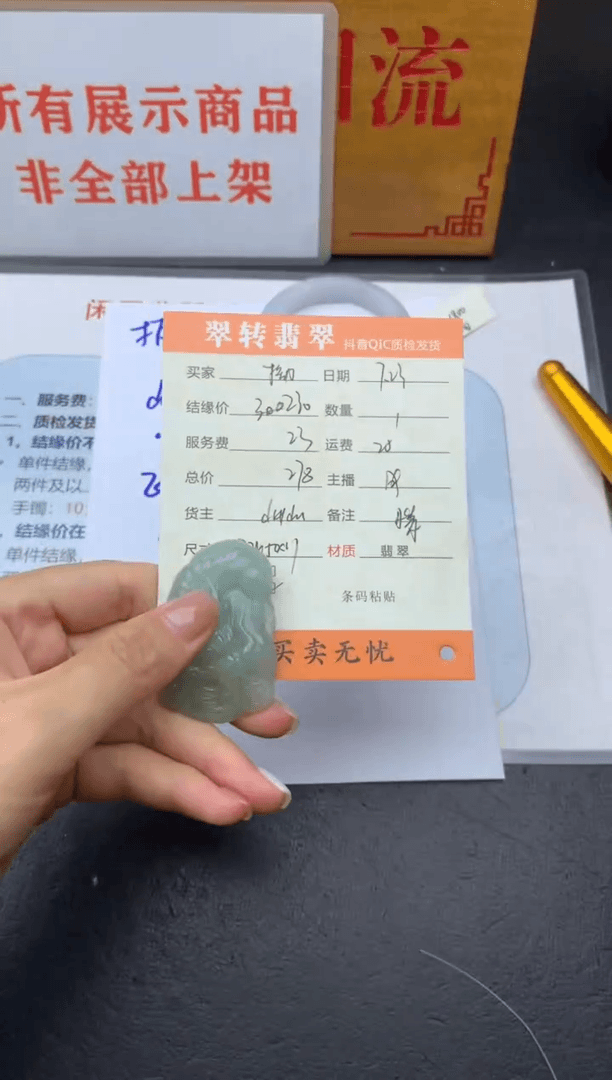 所有展示商品
非全部上架
流
翠转翡翠 抖音QIC质检发货
买家 日期 7.23
结缘价 300230 数量 1
服务费 23 运费 20
总价 278 主播
货主 dudu 备注
材质 翡翠
条码粘贴
买卖无忧
一、服务费：
二、质检发货
1，结缘价不
单件结缘，
两件及以
手镯：10
结缘价在
单件结缘，